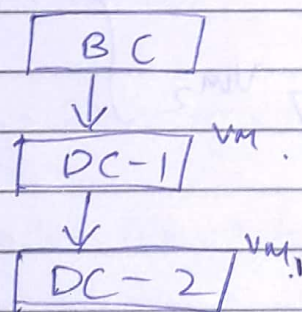 BC
DC-1 VM.
DC-2 VM.